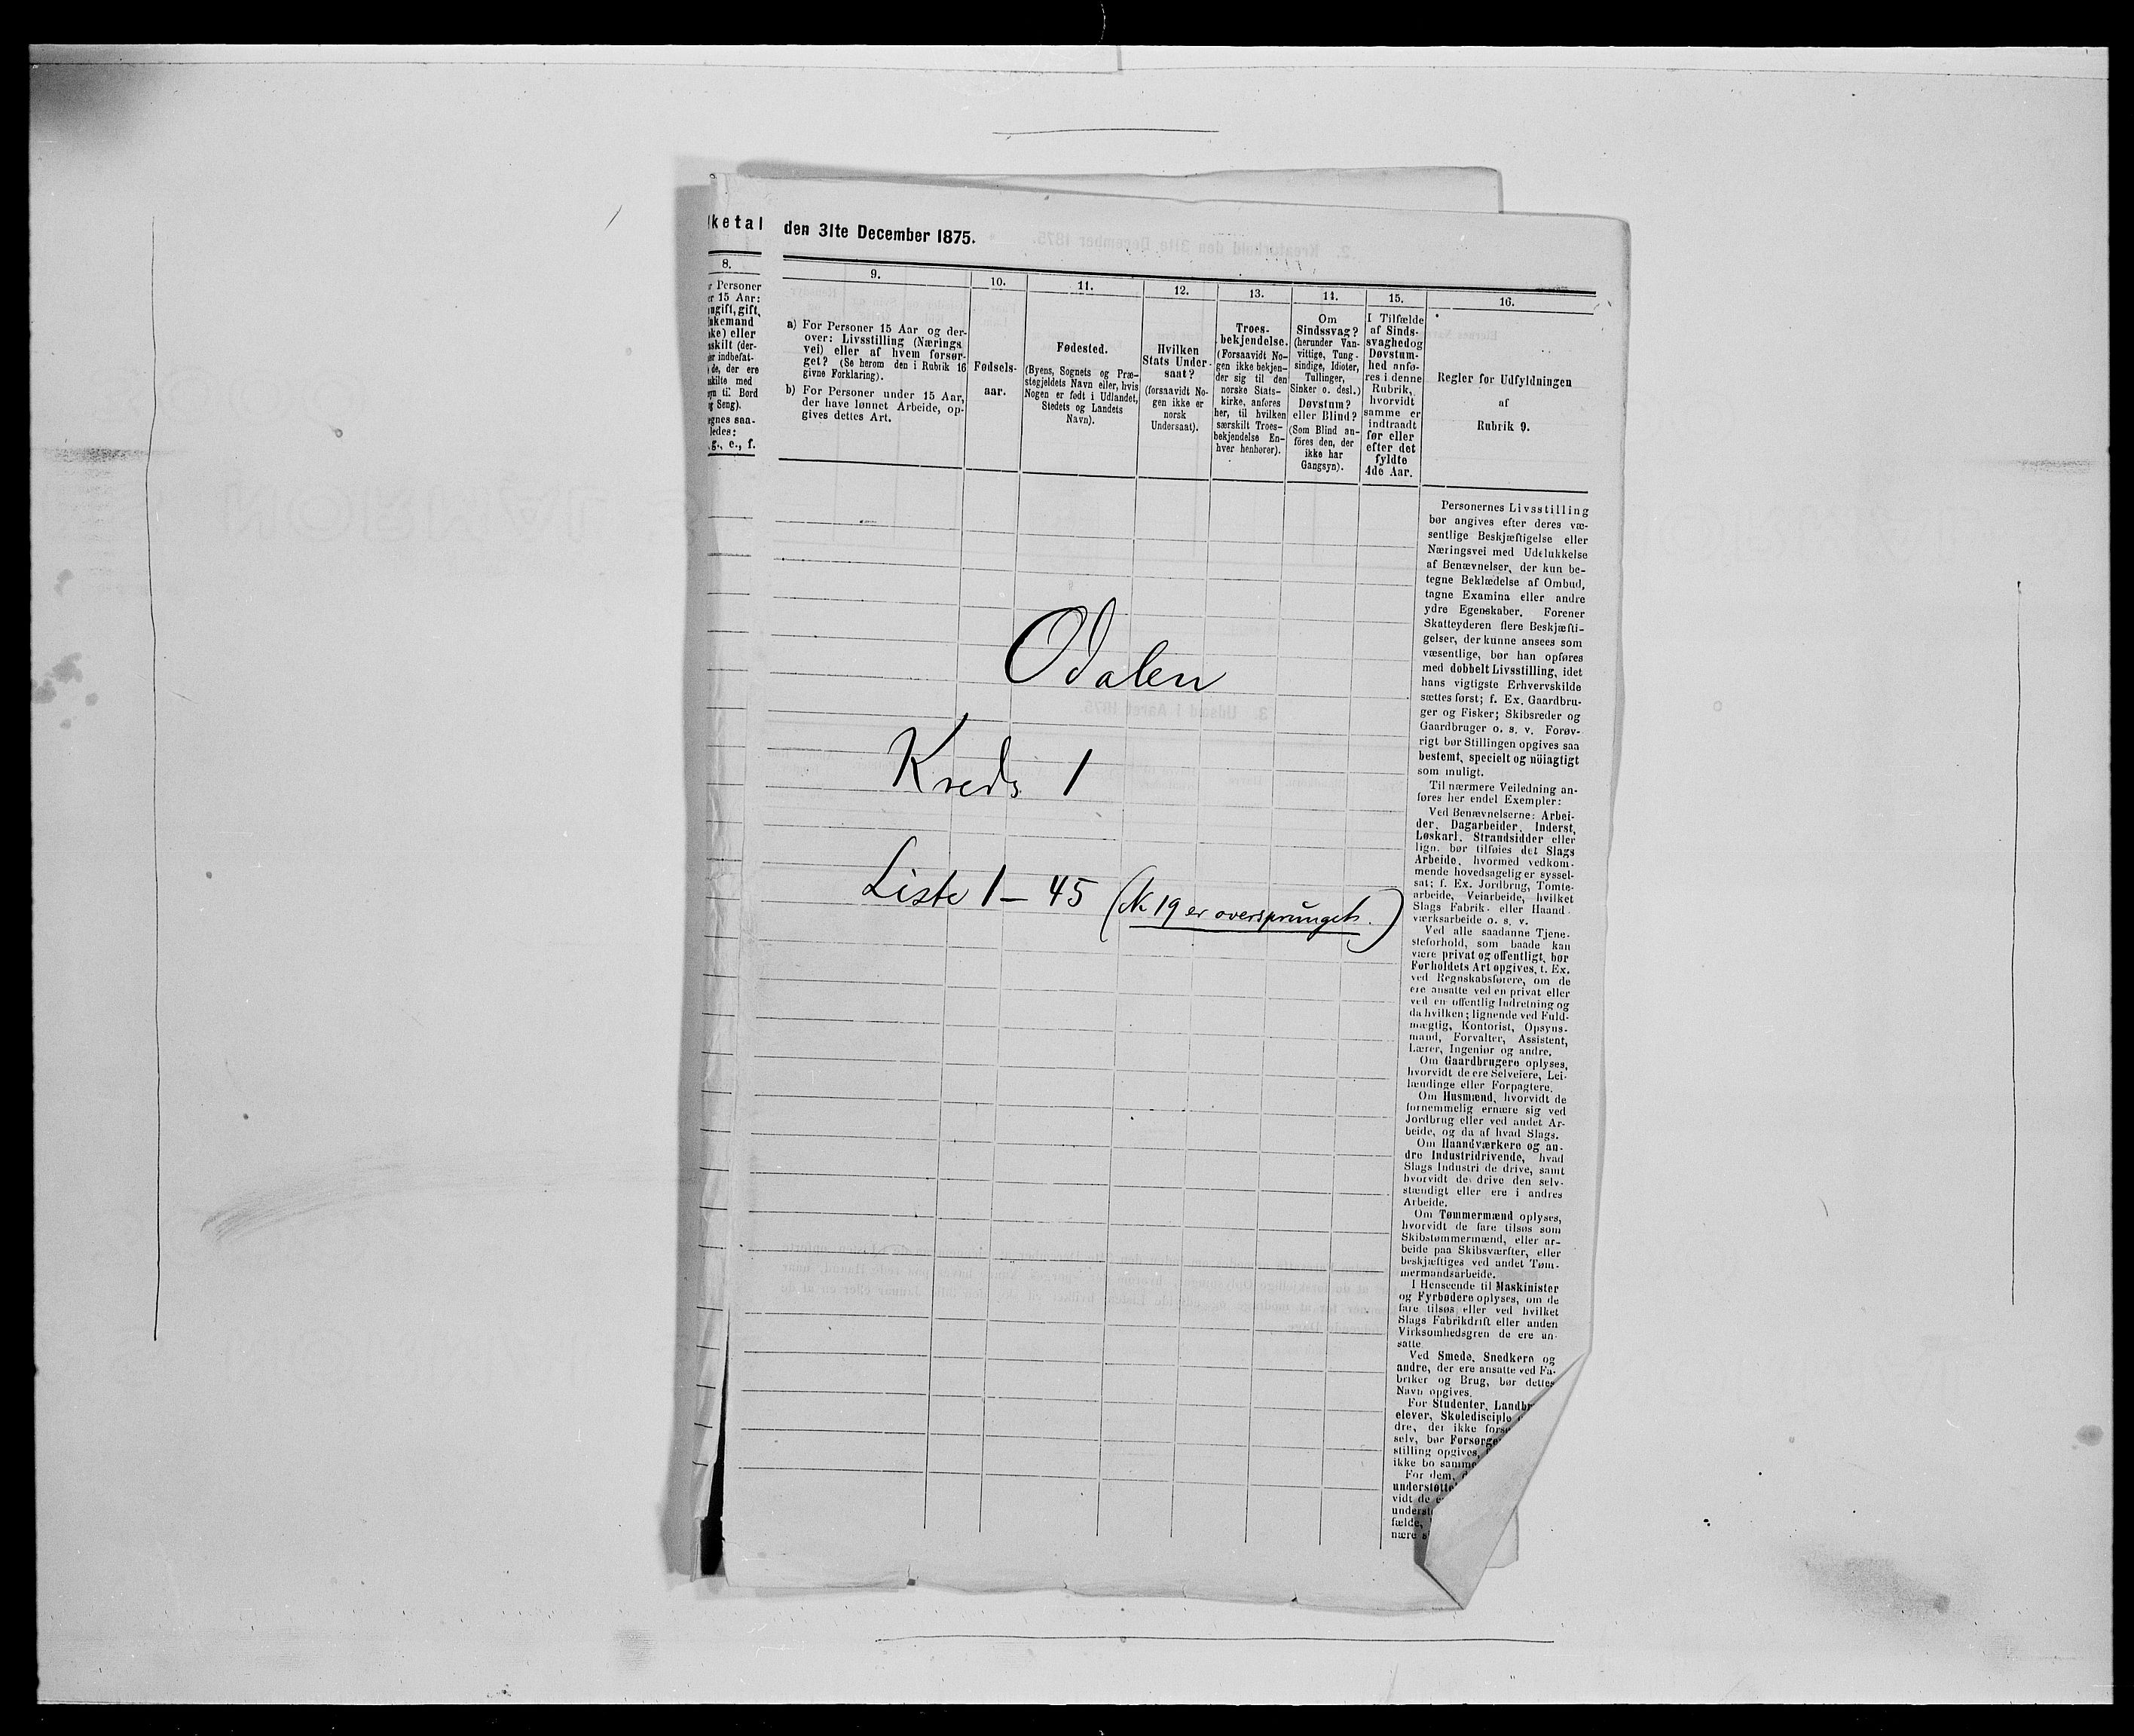 ketal den 31te December 1875.
8.
Personer
15 Aar:
ugift, gift,
eller
skilt (der-
indbefat-
de, der ere
skilte med
til Bord
Seng).
egnes saa-
ledes:
g., e., f.
9.
a) For Personer 15 Aar og der-
over: Livsstilling (Nærings
vei) eller af hvem forsør-
get? (Se herom den i Rubrik 16
givne Forklaring).
b) For Personer under 15 Aar,
der have lønnet Arbeide, op-
gives dettes Art.
10.
Fødsels-
aar.
11.
Fødested.
(Byens, Sognets og Præ-
stegjeldets Navn eller, hvis
Nogen er født i Udlandet,
Stedets og Landets
Navn).
12.
Hvilken
Stats Under-
saat?
(forsaavidt No-
gen ikke er
norsk
Undersaat).
13.
Troes-
bekjendelse.
(Forsaavidt No-
gen ikke bekjen-
der sig til den
norske Stats-
kirke, anføres
her, til hvilken
særskilt Troes-
bekjendelse En-
hver henhører).
14.
Om
Sindssvag?
(herunder Van-
vittige, Tung-
sindige, Idioter,
Tullinger,
Sinker o. desl.)
Døvstum?
eller Blind?
(Som Blind an-
føres den, der
ikke har
Gangsyn).
15.
I Tilfælde
af Sinds-
svaghed og
Døvstum-
hed anfø-
res i denne
Rubrik,
hvorvidt
samme er
indtraadt
før eller
efter det
fyldte
4de Aar.
16.
Regler for Udfyldningen
af
Rubrik 9.
Odalen
Kreds 1
Liste 1 - 45 (№ 19 er oversprunget.)
Personernes Livsstilling
bør angives efter deres væ-
sentlige Beskjæftigelse eller
Næringsvei med Udelukkelse
af Benævnelser, der kun be-
tegne Beklædelse af Ombud,
tagne Examina eller andre
ydre Egenskaber. Forener
Skatteyderen flere Beskjæfti-
gelser, der kunne ansees som
væsentlige, bør han opføres
med dobbelt Livsstilling, idet
hans vigtigste Erhvervskilde
sættes først; f. Ex. Gaardbru-
ger og Fisker; Skibsreder og
Gaardbruger o. s. v. Forøv-
rigt bør Stillingen opgives saa
bestemt, specielt og nöiagtigt
som muligt.
Til nærmere Veiledning an-
føres her endel Exempler:
Ved Benævnelserne: Arbei-
der, Dagarbeider, Inderst,
Løskarl, Strandsidder eller
lign. bør tilføies det Slags
Arbeide, hvormed vedkom-
mende hovedsagelig er syssel-
sat; f. Ex. Jordbrug, Tomte-
arbeide, Veiarbeide, hvilket
Slags Fabrik- eller Haand-
værksarbeide o. s. v.
Ved alle saadanne Tjene-
steforhold, som baade kan
være privat og offentligt, bør
Forholdets Art opgives, t. Ex.
ved Regnskabsførere, om de
ere ansatte ved en privat eller
ved en offentlig Indretning og
da hvilken; lignende ved Fuld-
mægtig, Kontorist, Opsyns-
mand, Forvalter, Assistent,
Lærer, Ingeniør og andre.
Om Gaardbrugere oplyses,
hvorvidt de ere Selveiere, Lei-
lændinge eller Forpagtere.
Om Husmænd, hvorvidt de
fornemmelig ernære sig ved
Jordbrug eller ved andet Ar-
beide, og da af hvad Slags.
Om Haandværkere og an-
dre Industridrivende, hvad
Slags Industri de drive, samt
hvorvidt de drive den selv-
stændigt eller ere i andres
Arbeide.
Om Tømmermænd oplyses,
hvorvidt de fare tilsøs som
Skibstømmermænd, eller ar-
beide paa Skibsværfter, eller
beskjæftiges ved andet Tøm-
mermandsarbeide.
I Henseende til Maskinister
og Fyrbødere oplyses, om de
fare tilsøs eller ved hvilket
Slags Fabrikdrift eller anden
Virksomhedsgren de ere an-
satte.
Ved Smede, Snedkere og
andre, der ere ansatte ved Fa-
briker og Brug, bør dettes
Navn opgives.
For Studenter, Landbr
elever, Skoledisciple
dre, der ikke fors
selv, bør Forsørge
stilling opgives,
ikke bo samme
For dem,
understøtte
vidt de
underst
fælde,
nære